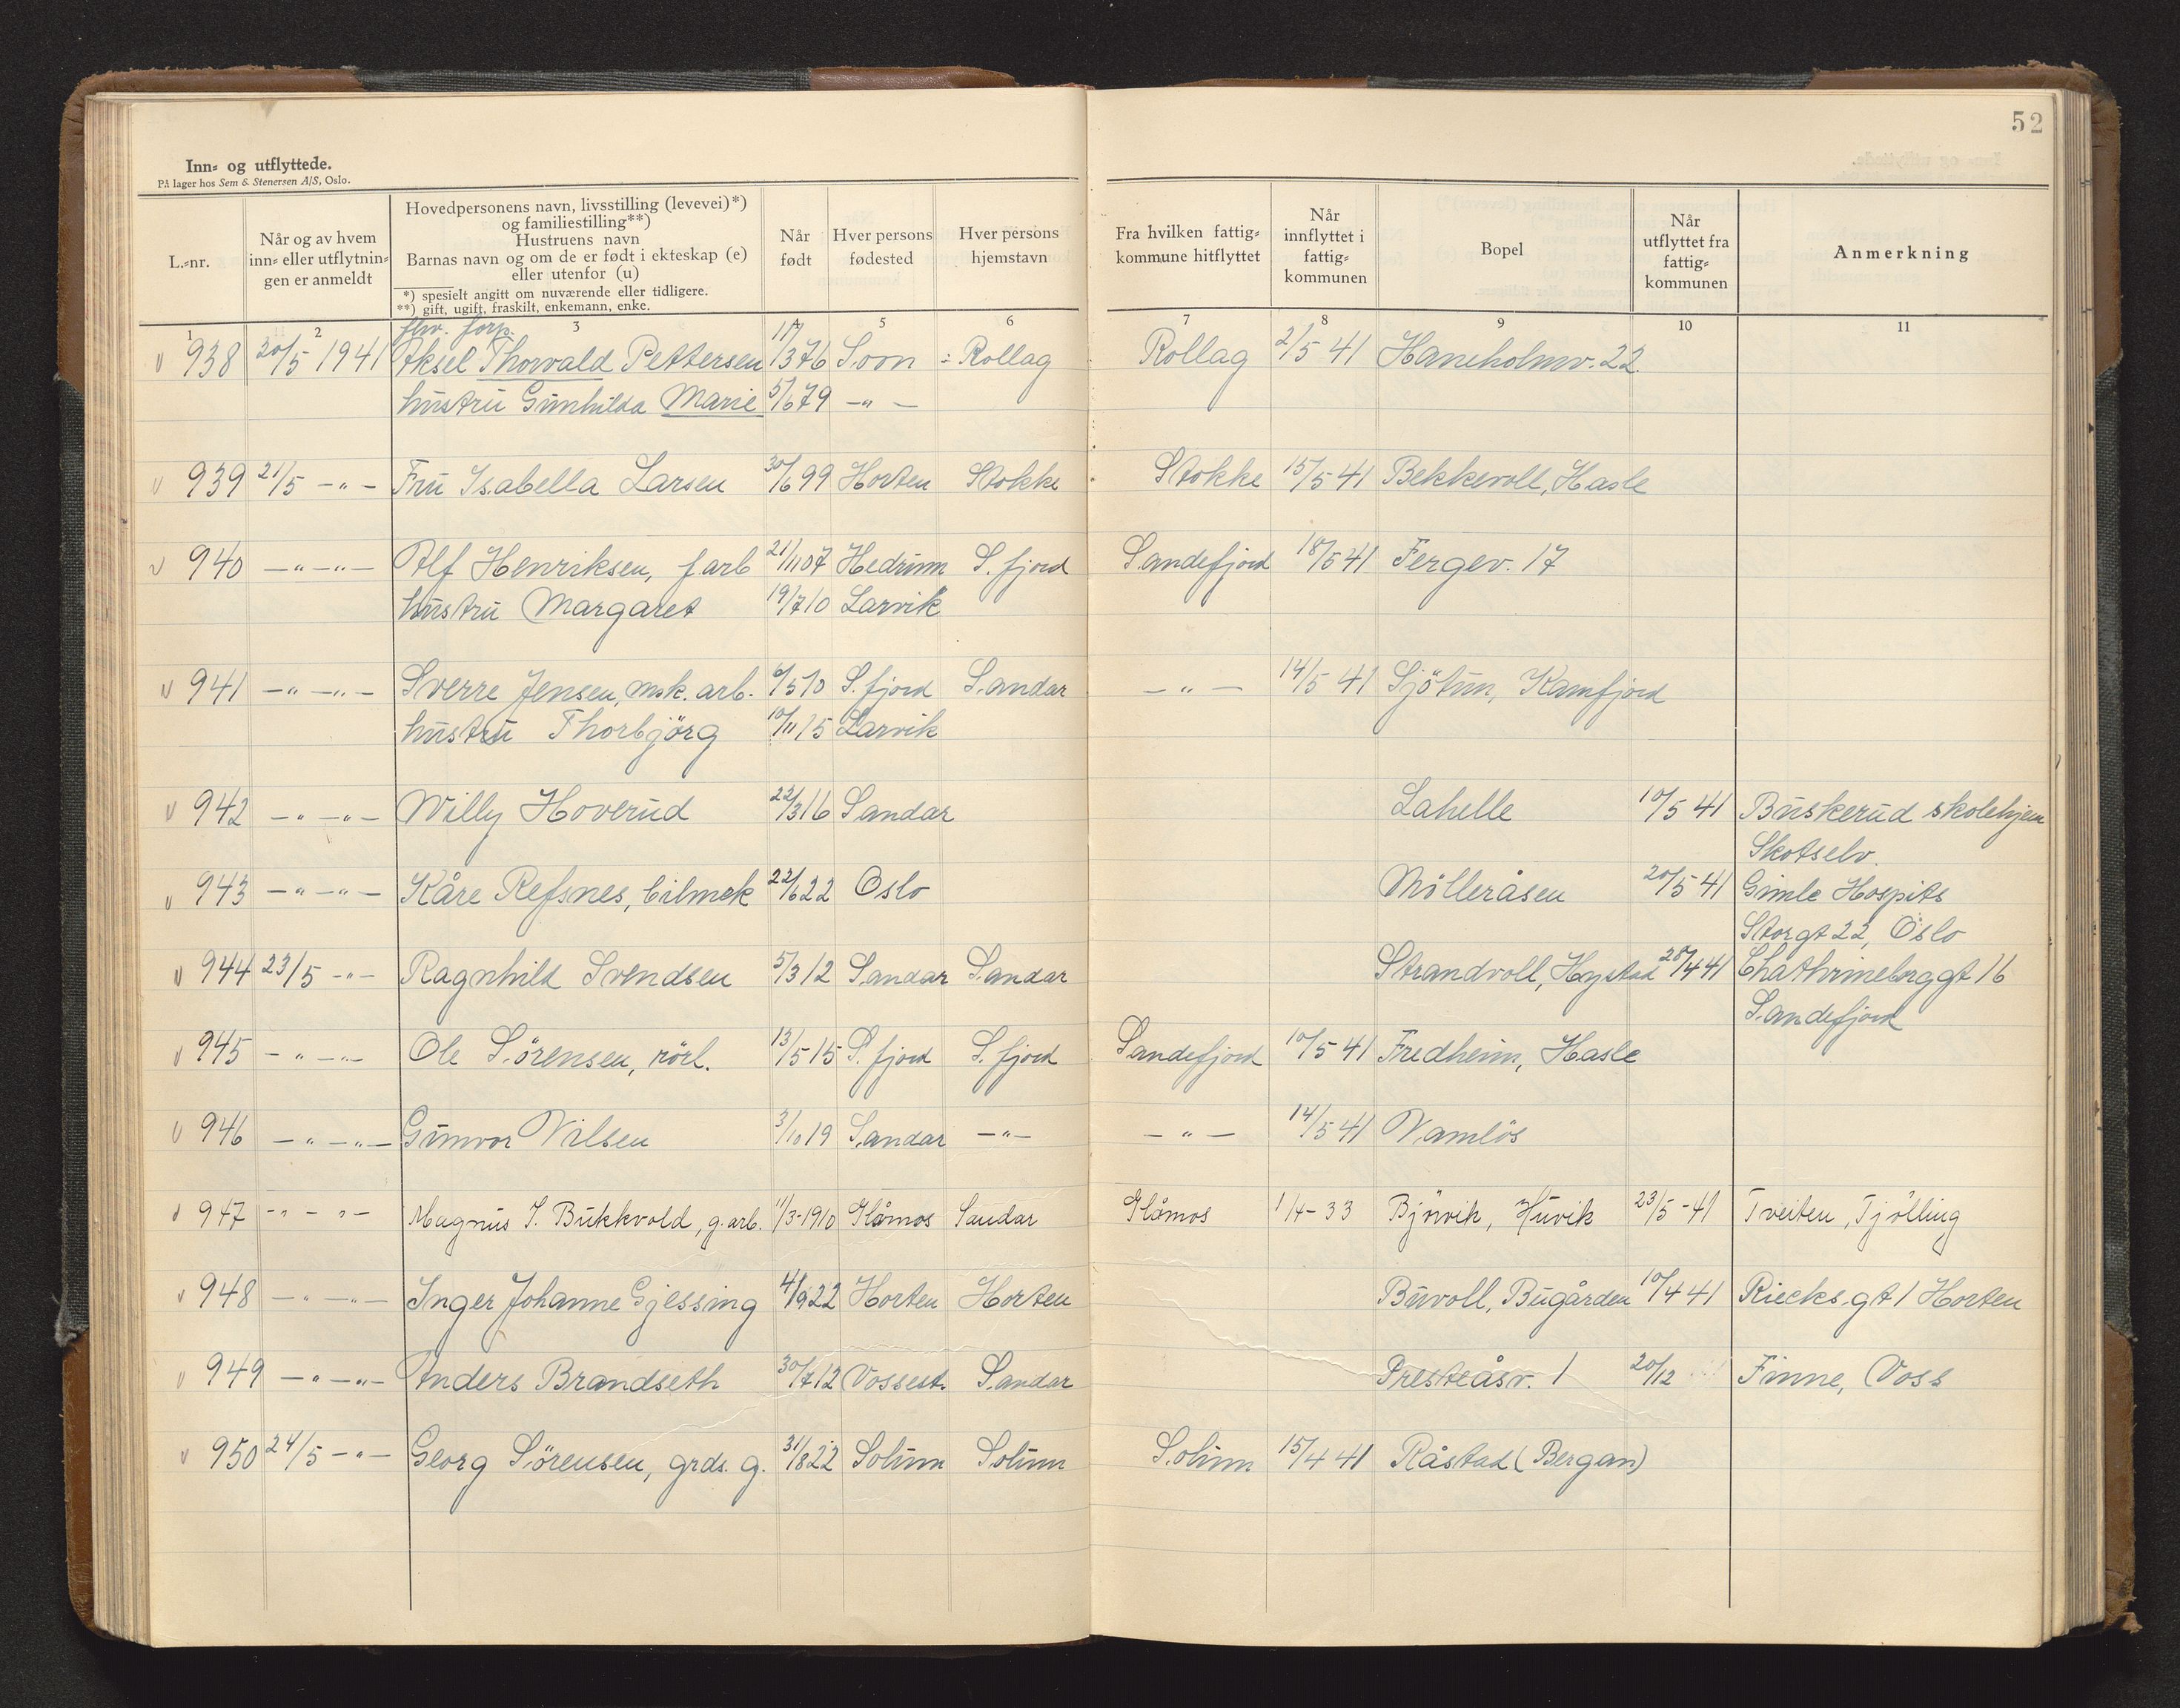 52
Inn= og utflyttede.
På lager hos Sem & Stenersen A/S, Oslo.
L.=nr.
Når og av hvem inn= eller utflytnin= gen er anmeldt
Hovedpersonens navn, livsstilling (levevei)*) og familiestilling**) Hustruens navn Barnas navn og om de er født i ekteskap (e) eller utenfor (u)
*) spesielt angitt om nuværende eller tidligere.
**) gift, ugift, fraskilt, enkemann, enke.
Når født
Hver persons fødested
Hver persons hjemstavn
Fra hvilken fattig= kommune hitflyttet
Når innflyttet i fattig= kommunen
Bopel
Når utflyttet fra fattig= kommunen
Anmerkning
1 2 3 4 5 6 7 8 9 10 11
fhv. forp.
938 20/5 1941 Aksel Thorvald Pettersen 17/3 76 Soon Rollag Rollag 2/5 41 Haneholmv. 22
hustru Gunhilda Marie 5/6 79 -"-
939 21/5 -"- Fru Isabella Larsen 30/6 99 Horten Stokke Stokke 15/5 41 Bekkevoll, Hasle
940 -"-"- Alf Henriksen, f.arb 21/11 07 Hedrum S. fjord Sandefjord 18/5 41 Fergev. 17
hustru Margaret 19/7 10 Larvik
941 -"-"- Sverre Jensen, msk. arb. 6/5 10 S. fjord Sandar -"- 14/5 41 Sjötun, Kamfjord
hustru Thorbjörg 10/11 15 Larvik
942 -"-"- Willy Hoverud 22/3 16 Sandar Lahelle 10/5 41 Buskerud skolehjem
Skotselv.
943 -"-"- Kåre Refsnes, bilmek 22/6 22 Oslo Mölleråsen 20/5 41 Gimle Hospits
Storgt 22, Oslo
944 23/5 -"- Ragnhild Svendsen 5/3 12 Sandar Sandar Strandvoll, Hystad 28/4 41 Chathrineborggt 16
Sandefjord
945 -"-"- Ole Sörensen, rörl. 13/5 15 S. fjord S. fjord Sandefjord 10/5 41 Fredheim, Hasle
946 -"-"- Gunvor Nilsen 3/10 19 Sandar -"- -"- 14/5 41 Namlös
947 -"-"- Magnus S. Bukkvold, g.arb. 11/3-1910 Glåmos Sandar Glåmos 1/4-33 Björvik, Huvik 23/5-41 Tveiten, Tjölling
948 -"-"- Inger Johanne Gjessing 4/9 22 Horten Horten Buvoll, Bugården 10/4 41 Riecks.gt 1 Horten
949 -"-"- Anders Brandseth 30/7 12 Vossest. Sandar Presteåsv. 1 20/12 Finne, Voss
950 24/5 -"- Georg Sörensen, grds. g. 31/8 22 Solum Solum Solum 15/4 41 Råstad (Bergan)